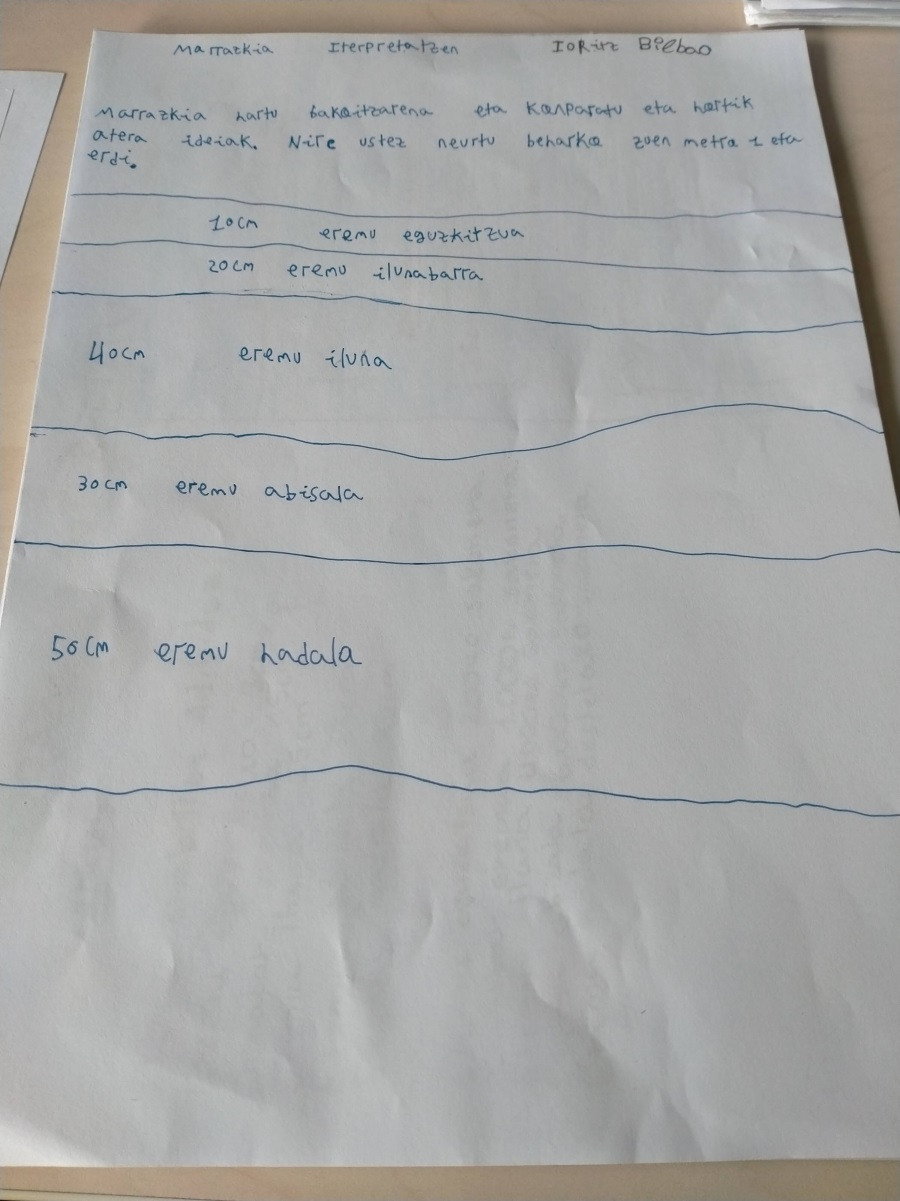 Marrazkia Iterpretatzen IoRitz Bilbao
Marrazkia hartu bakoitzarena eta Konparatu eta hortik
atera ideiak. Nire ustez neurtu beharko zuen metra 1 eta
erdi.
10cm eremu eguzkitzua
20cm eremu ilunabarra
40cm eremu iluna
30cm eremu abisala
50cm eremu hadala